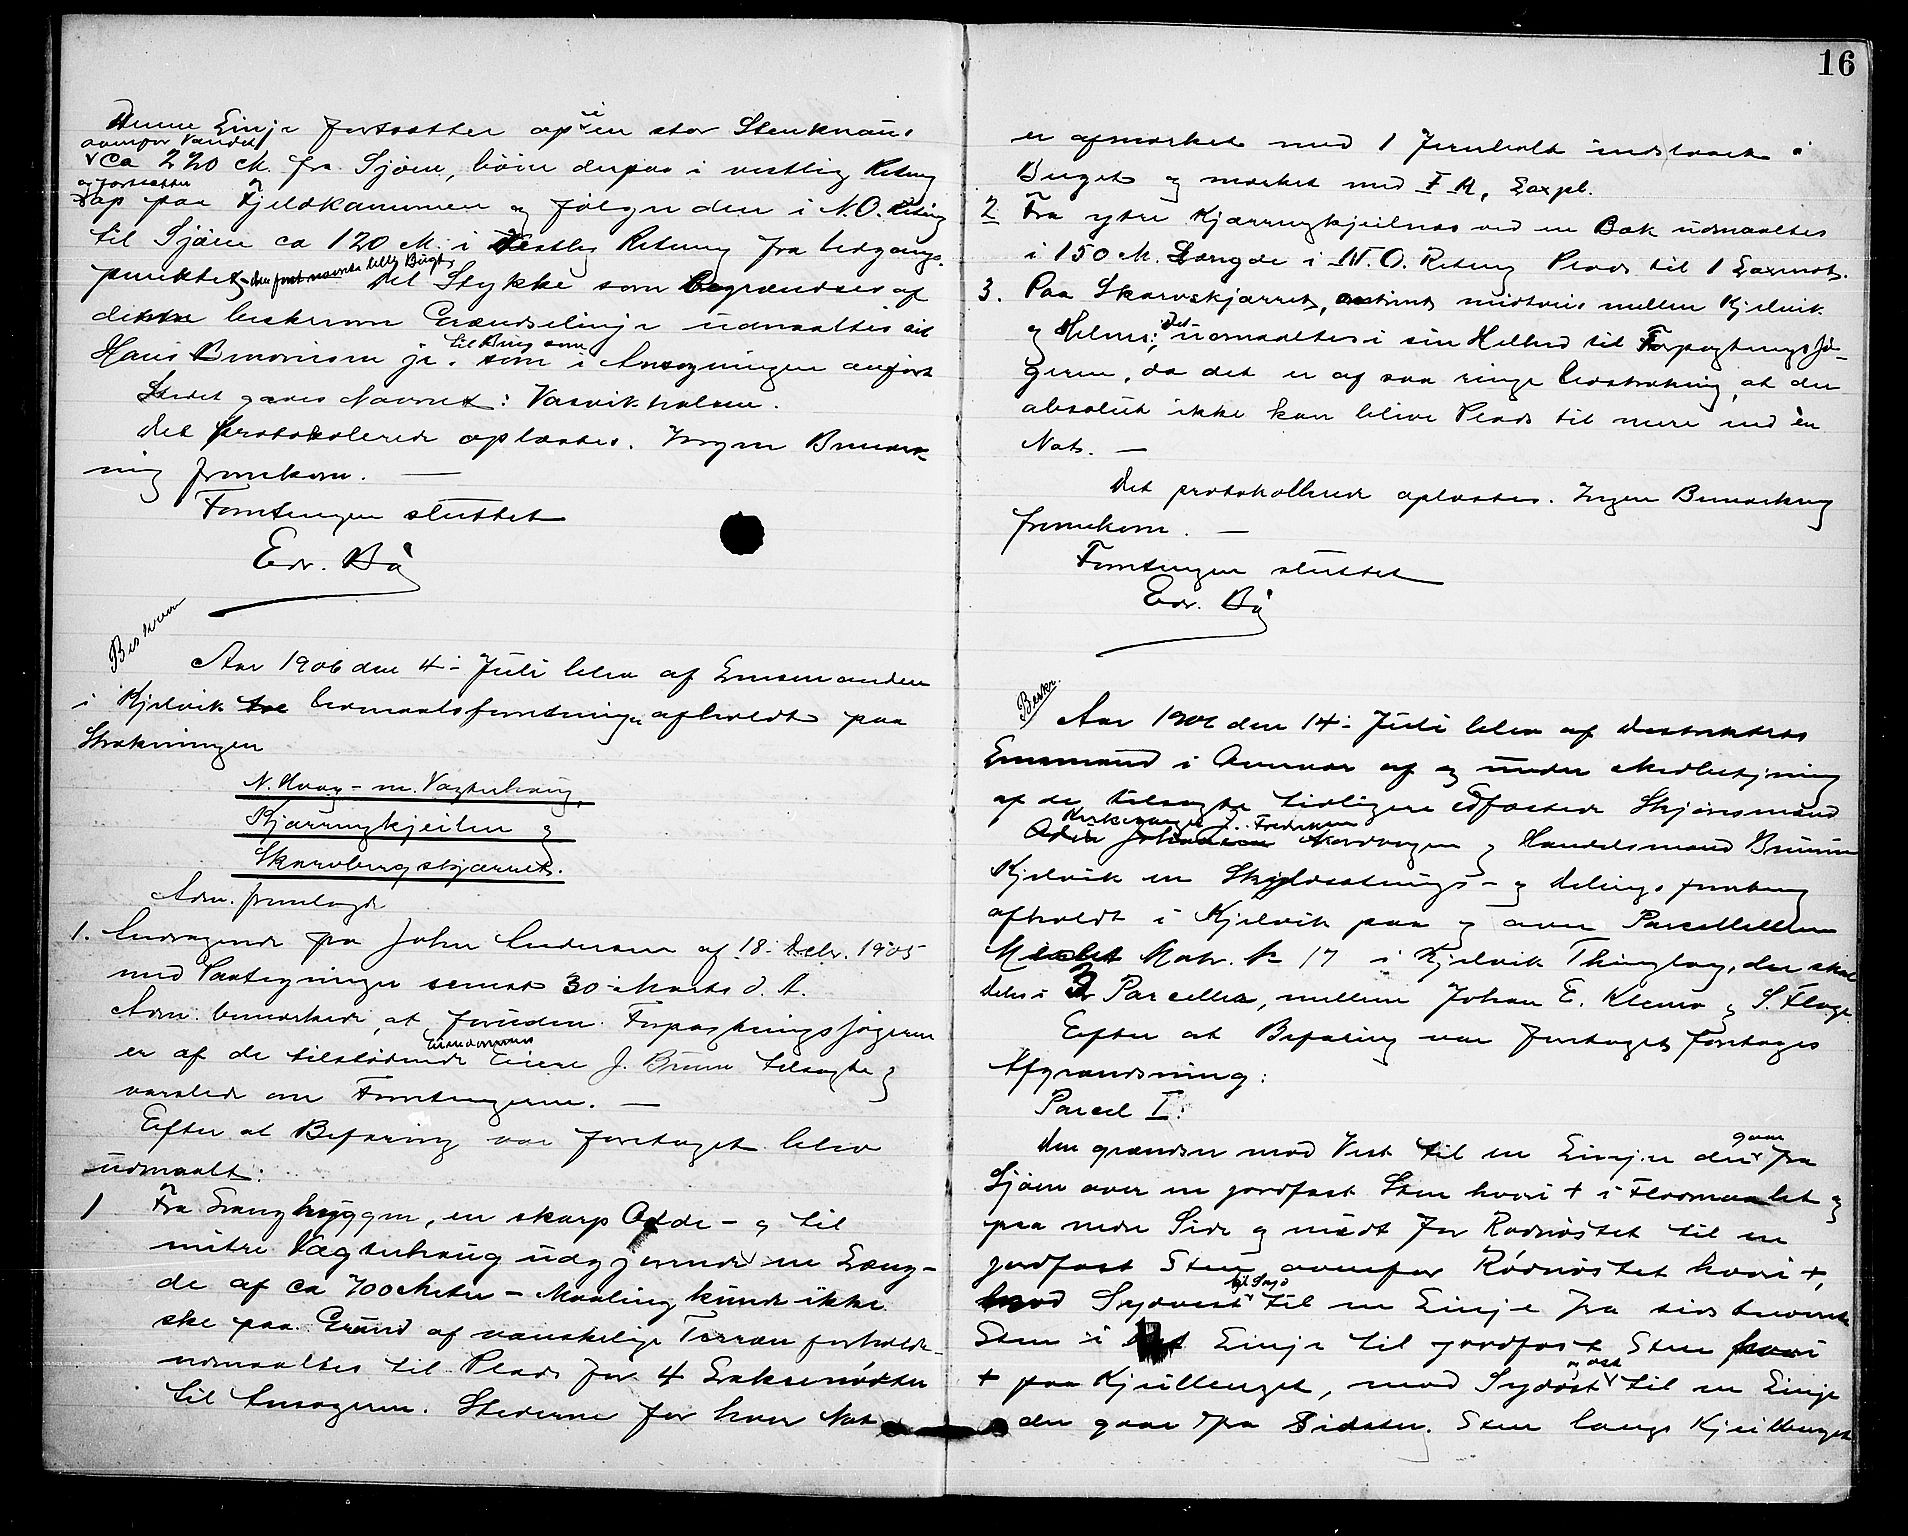 Denne Linje fortsætter op i en stor Stenknaus
ovenfor Vandet
ca 220 M. fra Sjøen, bøier derpaa i vestlig Retning
og fortsætter
op paa Fjeldkammen og følger den i N.O. Retning
til Sjøen ca 120 M. i Vestlig Retning fra Udgangs-
punktet den først nævnte lille Bugt. Det Stykke som begrændses af
denne beskrevne Grændselinje udmaaltes til
til Brug som
Hans jr. som i Ansøgningen anført
Stedet gaves Navnet: Vasvikhalsen.
Det protokolerede oplæstes. Ingen Bemærk-
ning fremkom. —
Forretningen sluttet
Edv. Bø
Beskreven
Aar 1906 den 4. Juli blev af Lensmanden
i Kjelvik tre Udmaalsforretninger afholdt paa
Strækningen
N. Honn - m. Vagterhaug,
Kjærringkjeilen og
Skarvbergskjærret.
Adm. fremlagde
1. Andragende fra John Andersen af 18. Debr. 1905
med Paategninger senest 30 Marts d. A.
Adm. bemærkede, at foruden Forpagtningssøgeren
er af de tilstødende Eiendommes Eiere J. Bruun tilsagte og
varslede om Forretningerne. —
Efter at Befaring var foretaget blev
udmaalt:
1 Fra Langhyggen, en skarp Odde - og til
mitre Vagterhaug udgjørende en Læng-
de af ca 700 Meter - Maaling kunde ikke
ske paa Grund af vanskelige Terrænforholde -
udmaaltes til Plads for 4 Laksenødter
til Ansøgeren. Stederne for hver Not
16
er afmærket med 1 Jernbolt indslaaet i
Berget og mærket med F M, Laxpl.
2 Fra ytre Kjærringkjeilnes ved en Bæk udmaaltes
i 150 M. Længde i N.O. Retning Plads til 1 Laxenot.
3. Paa Skarvskjærret, omtrent midtveis mellem Kjelvik
og Helnes; Det udmaaltes i sin Helhed til Forpagtningssø-
geren, da det er af saa ringe Udstrækning, at der
absolut ikke kan blive Plads til mere end én
Not. —
Det protokollerede oplæstes. Ingen Bemærkning
fremkom. —
Forretningen sluttet
Edv. Bø
Beskr.
Aar 1906 den 14. Juli blev af Distriktets
Lensmand i Overvær af og under Medbetjening
af de tilsagte tidligere edfæstede Skjønsmænd
Kirkesanger J. Fredriksen
Odin Johansen Nordvaagen og Handelsmand Bruun
Kjelvik en Skyldsætnings- og Delingsforretning
afholdt i Kjelvik paa og over Parcellen
Matr. No 17 i Kjelvik Thinglag, der skal
deles i 3 Parceller, mellem Johan E. Klemo og S. Floge.
Efter at Befaring var foretaget foretoges
Afgrændsning:
Parcel I:
Den grændser mod Vest til en Linje der gaar fra
Sjøen over en jordfast Sten hvori + i Flodmaalet og
paa nedre Side og midt for Rodnøstet til en
jordfast Sten ovenfor Rodnøstet hvori +,
mod Sydvest til Syd til en Linje fra sidstnævnte
Sten i ret Linje til jordfast Sten hvori
+ paa Kjeilberget, mod Sydøst og øst til en Linje
der gaar fra sidste Sten langs Kjeilberget